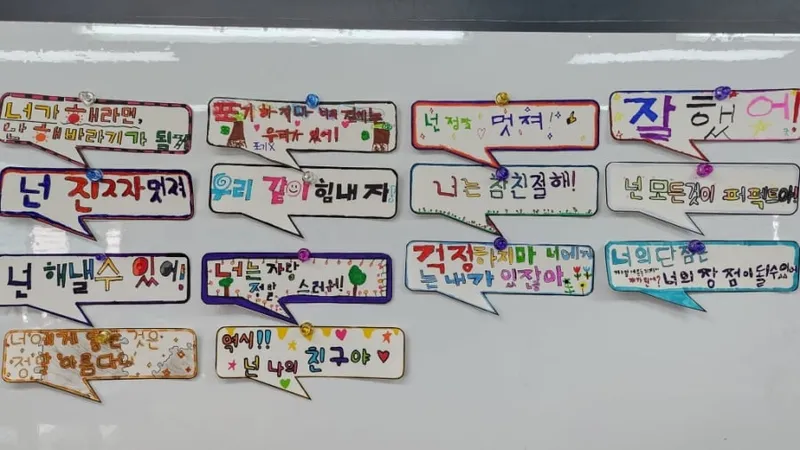 너가 해라면,
난 해바라기가 될게
포기 하지마 너의 곁에는
우리가 있어!
포기 X
넌 정말 멋져!
잘했어!
넌 진짜 멋져
우리 같이 힘내자!
너는 참 친절해!
넌 모든것이 퍼펙트야!
넌 해낼수 있어!
너는 자랑
정말 스러워!
걱정하지마 너에게
는 내가 있잖아
너의 단점은
너의 장점이 될 수 있어
너에게 좋은 것은
정말 아름다워
역시!!
넌 나의 친구야